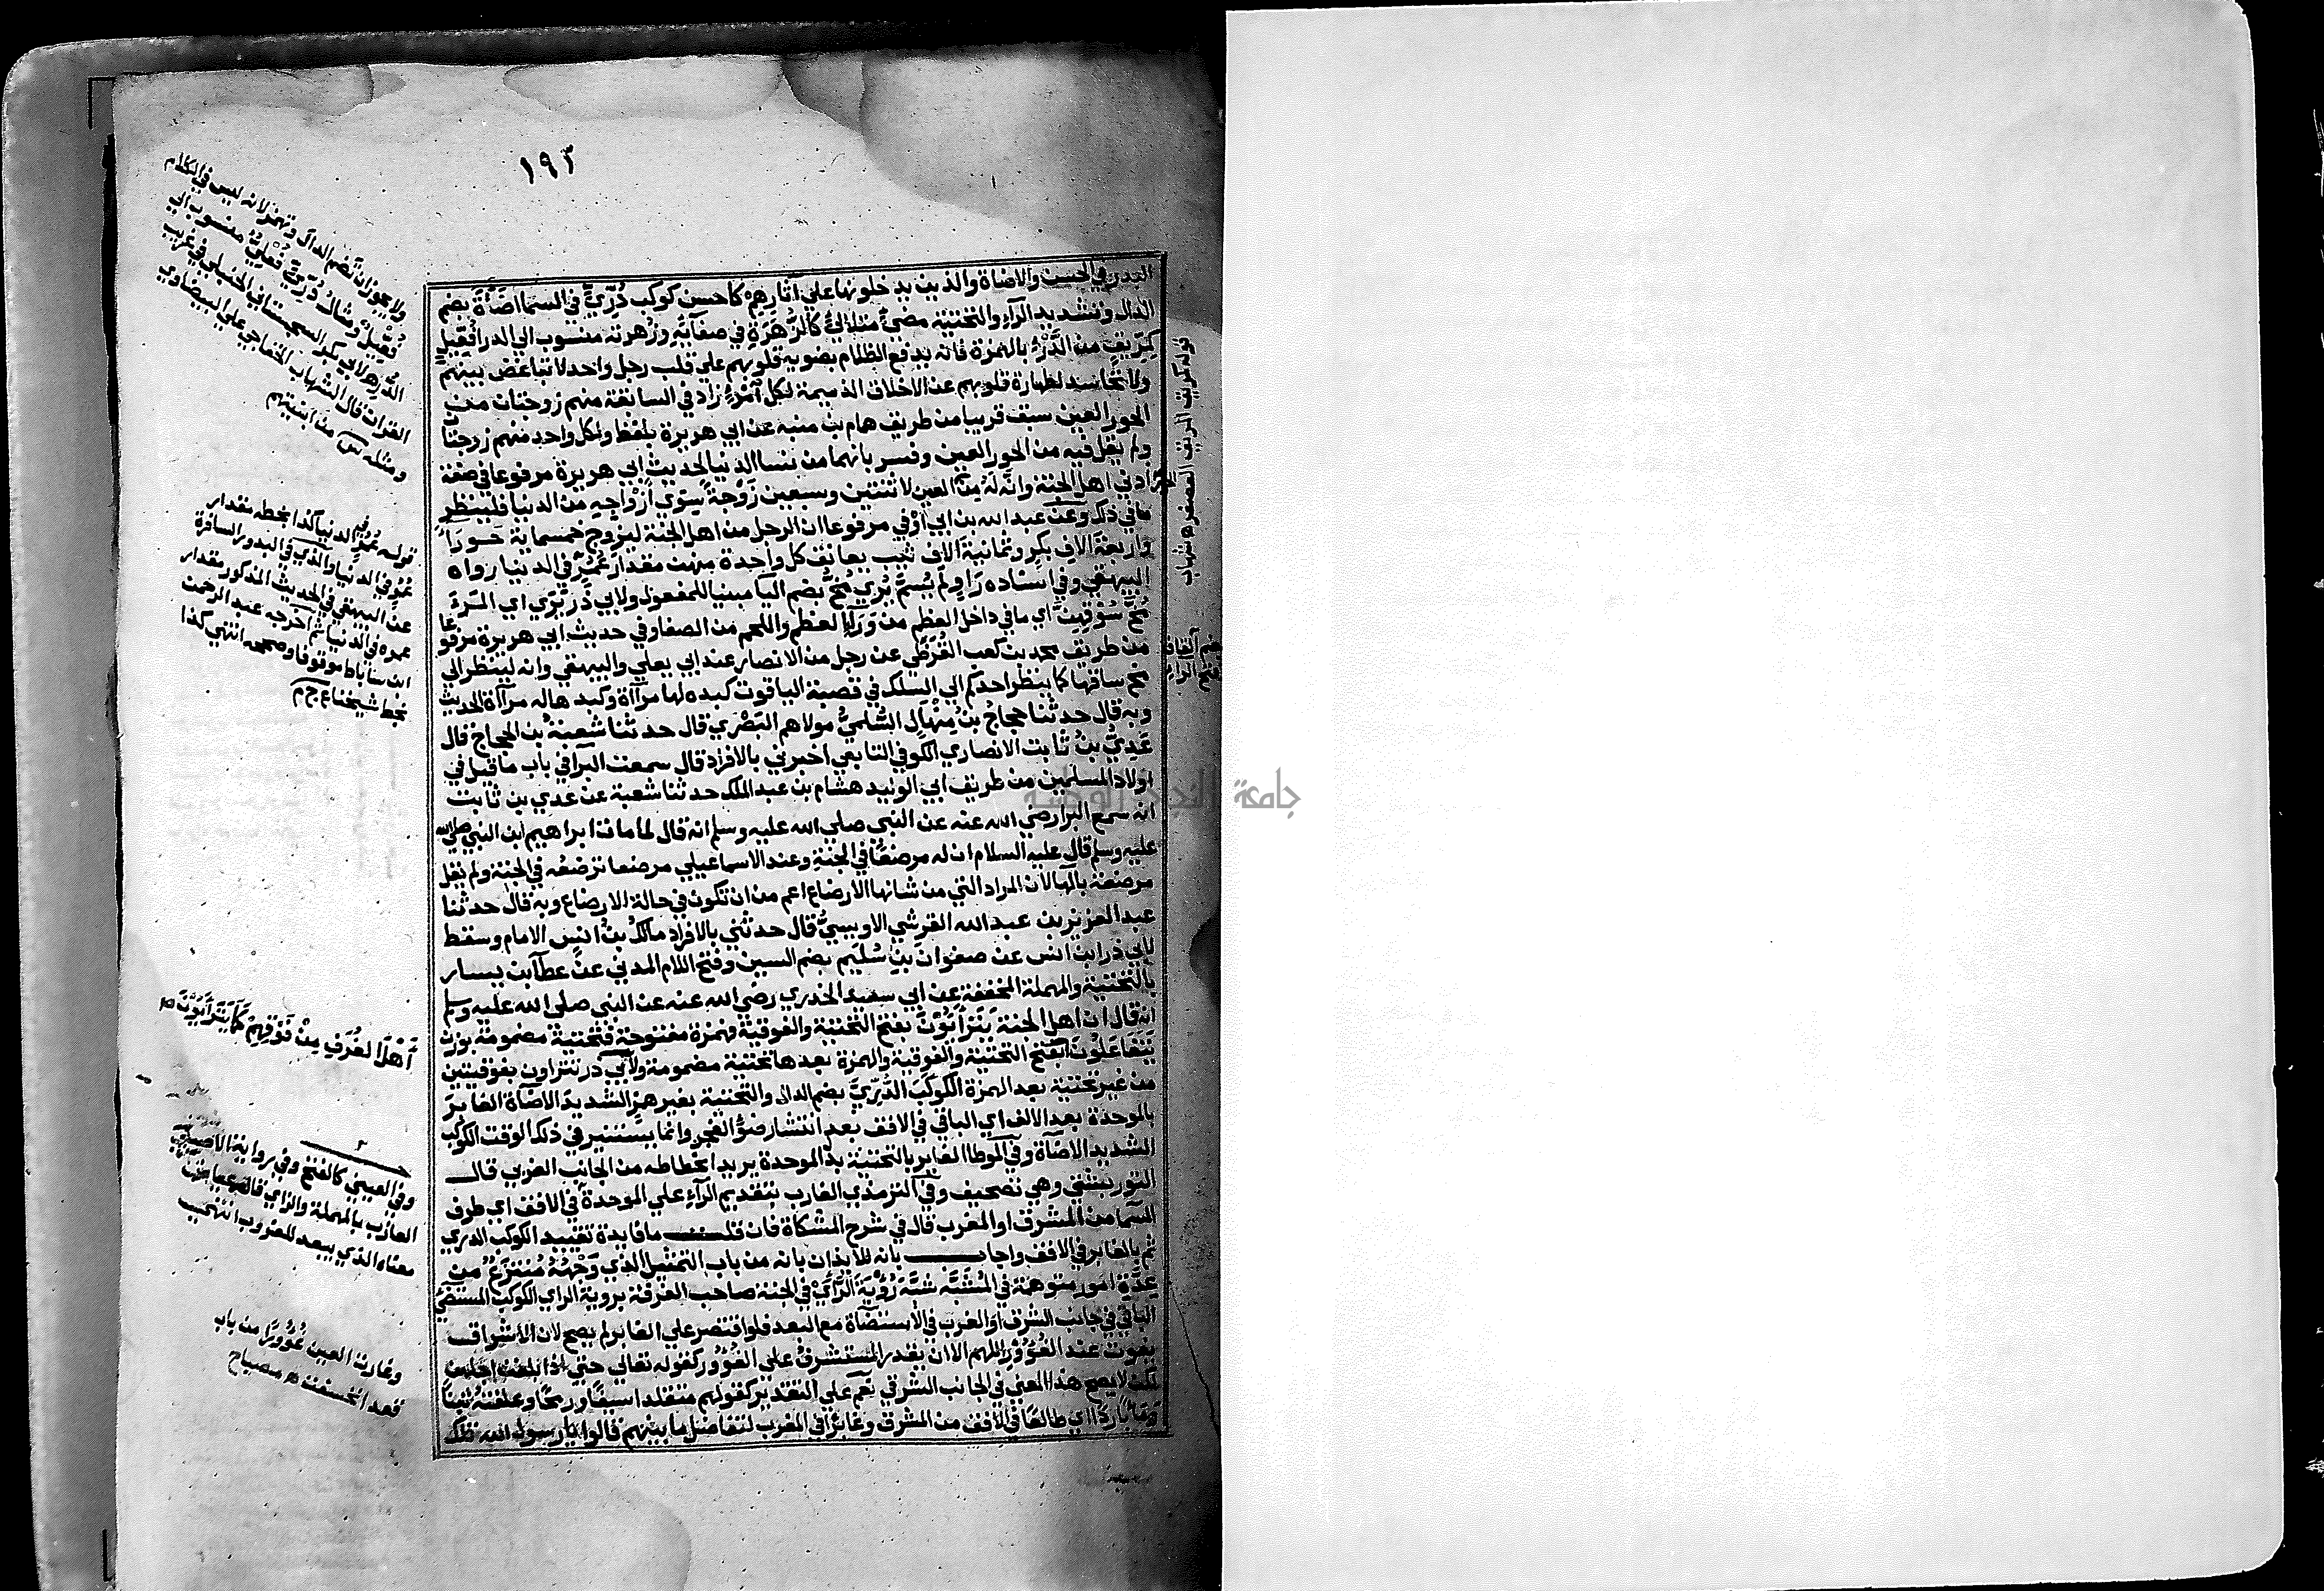 ١٩٣
البدر في الحسن والاضاة والذين يدخلونها على آثارهم كاحسن كوكب دُرّيّ في السما اضَآةً بضم
الدال وتشديد الراء والتحتية مضيء متلالئ كالزُّهَرَةِ في صفآيهِ وزُهرته منسوب الي الدر او فُعّيل
كمِرّيق من الدَّرْءِ بالهمزة فانه يدفع الظلام بضويه قلوبهم علي قلب رجل واحد لا تباغض بينهم
ولا تحاسد لطهارة قلوبهم عن الاخلاق الذميمة لكل امْرءٍ زاد في السابقة منهم زوجتان من
الحور العين سبق قريبا من طريق همام بن منبه عن ابي هريرة بلفظ ولكل واحد منهم زوجتا
ولم يقل فيه من الحور العين وفسر بانهما من نسا الدنيا لحديث ابي هريرة مرفوعا في صفة
ادني اهل الجنة وانَّ لهُ من العين لاثنتين وسبعين زَوْجةً سِوَي اَزْوَاجِهِ من الدنيا فلينظر
ما في ذلك وعن عبد الله بن ابي اوْفي مرفوعا ان الرجل من اهل الجنة ليزوج خمسماية حَورَآ
واربعة الاف بكر وثمانية الاف ثيب يعانق كل واحدة منهن مقدار عُمُرِ في الدنيا رواه
البيهقي وفي اسناده رَاوٍ لم يُسمَّ يُرَي مُخُّ بضم اليا مبنيا للمفعول ولابي ذر يَرَي اي المَرْءَ
مُخَّ سُوْقِهِنَّ اي ما في داخل العظم من وَرَآءِ العظم واللحم من الصفا وفي حديث ابي هريرة مرفوعا
من طريق محمد بن كعب القُرَظي عن رجل من الانصار عند ابي يعلي والبيهقي وانه لينظر الي
مخ ساقها كما ينظر احدكم الي السلك في قصبة الياقوت كبده لها مرآة وكبدها له مرآة الحديث
وبه قال حدثنا حجاجُ بنُ مِنْهالٍ السُّلميُّ مولاهم البَصْري قال حدثنا شعبةُ بن الحجاج قال
عَدِيُّ بنُ ثابت الانصاري الكوفي التابعي اخبرني بالافراد قال سمعت البرا في باب ما قيل في
اولاد المسلمين من طريق ابي الوليد هشام بن عبد الملك حدثنا شعبة عن عدي بن ثابت
انه سمع البرا رضي الله عنه عن النبي صلي الله عليه وسلم انه قال لما مات ابراهيم ابن النبي صلي الله
عليه وسلم قال عليه السلام ان له مرضعًا في الجنة وعند الاسماعيلي مرضعا ترضعه في الجنة ولم يقل
مرضعة بالها لان المراد التي من شانها الارضاع اعم من ان تكون في حالة الارضاع وبه قال حدثنا
عبد العزيز بن عبد الله القرشي الاويسيُّ قال حدثني بالافراد مالك بنُ انس الامام وسقط
لابي ذر ابن انس عن صفوانَ بنِ سُلَيم بضم السين وفتح اللام المدني عن عطآ بن يسار
بالتحتية والمهملة المخففة عن ابي سعيد الخدري رضي الله عنه عن النبي صلي الله عليه وسلم
انه قال ان اهل الجنة يَتَرَآيَوْنَ بفتح التحتية والفوقية فهمزة مفتوحة فتحتية مضمومة بوزن
يَتَفَاعَلُونَ بفتح التحتية والفوقية والهمزة بعدها تحتية مضمومة ولابي ذر تتراون بفوقيتين
من غير تحتية بعد الهمزة الكوكبَ الدُّرّيَّ بضم الدال والتحتية بغير همز الشديد الاضاة الغابِرَ
بالموحدة بعد الالف اي الباقي في الافق بعد انتشار ضوء الفجر وانما يستنير في ذلك الوقت الكوكب
الشديد الاضاة وفي الموطا الغاير بالتحتية بدل الموحدة يريد انحطاطه من الجانب الغربي قال
التوربشتي وهي تصحيف وفي الترمذي الغارب بتقديم الراءِ علي الموحدة في الافق اي طرف
السما من المشرق او المغرب قال في شرح المشكاة فان قلت ما فايدة تقييد الكوكب الدري
ثم بالغابر في الافق واجاب بانه للايذان بانه من باب التمثيل الذي وَجْهُهُ مُنتزَعٌ من
عِدَّةِ امور متوهمة في المُشبَّه شبَّه رُؤيةَ الرَّآئي في الجنة صاحب الغرفة بروية الراي الكوكب المستضئ
الباقي في جانب الشرق او الغرب في الاستضآة مع البعد فلو اقتصر علي الغابر لم يصح لان الاشراق
يفوت عند الغُؤُوْرِ اللهم الا ان يقدر المستشرف علي الغُؤُور كقوله تعالي حتي اذا بلغن اجلهن
لكن لا يصح هذا المعني في الجانب الشرقي نعم علي التقدير كقولهم متقلدا سيفًا ورمحًا وعلفتهُ تبنًا
ومآ باردا اي طالعًا في الافق من المشرق وغابرًا في المغرب لتفاضل ما بينهم قالوا يا رسول الله تلك
ولا يجوز ان تضم الدال وتهمز لانه ليس في الكلام
فُعّيل ومثال دُرّيّ فُعْليّ منسوب الي
الدُّر هـ لابي بكر السجستاني الحنبلي في غريب
القران قال الشهاب الخفاجي علي البيضاوي
ومثله من ابنيتهم
قوله عُمُرِ في الدنيا كذا بخطه مقدار
عُمُرِ في الدنيا والذي في البدور السافرة
عن البيهقي في الحديث المذكور مقدار
عمره في الدنيا ثم اخرجه عبد الرحمن
ابن سابط موقوفا وصححه انتهي كذا
بخط شيخنا ع ج م
اَهْلَ الغُرَفِ مِنْ فَوْقِهِمْ كَمَا يَتَرَآيَوْنَ
وفي العيني كالفتح وفي رواية الاصيلي
العازب بالمهملة والزاي قال عياض
معناه الذي يبعد للغروب انتهي
وغارت العين غُؤُورًا من باب
قعد انخسفت هـ مصباح
قوله كمريق المريق العصفر هـ شهاب
بضم القاف
وفتح الراء
جامعة